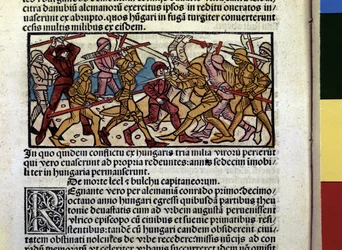 citra danubiū alemanorū exercitus ipsos in reditu oneratos in
uaserunt ex abrupto. quos hūgari in fugā turgiter conuerterunt
cesis multis milibus ex eisdem.
In quo quidem conflictu ex hungaris tria milia virorū perierūt
qui vero euaserunt ad propria redeuntes: annis sedecim imobi
liter in hungaria permanserunt.
De morte leel et bulchu capitaneorum.
REgnante vero per alemaniā conrado primo: decimo
octauo anno hungari egressi quibusdā partibus theu
tonie deuastatis cum ad vrbem augustā peruenissent
vlrico episcopo cū ciuibus et suene primatibus resi
stentibus: tandē cū hungari eandem obsiderent ciui
tatem obstinati nolentes de vrbe recedere: missis nūcijs ad con